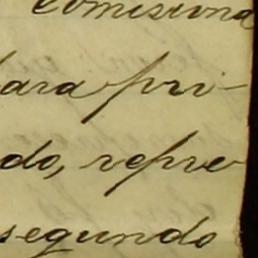 comisiona
para pri-
do, repre
segundo